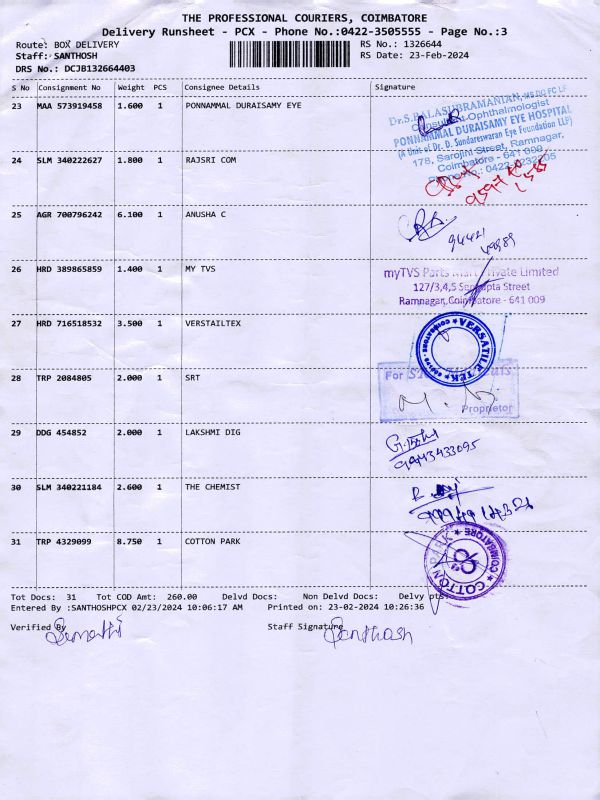 THE PROFESSIONAL COURIERS, COIMBATORE
Delivery Runsheet - PCX - Phone No.:0422-3505555 - Page No.:3
Route: BOX DELIVERY
RS No.: 1326644
Staff: SANTHOSH
RS Date: 23-Feb-2024
DRS No.: DCJB132664403
S No Consignment No Weight PCS Consignee Details Signature
23 MAA 573919458 1.600 1 PONNAMMAL DURAISAMY EYE
Dr.S.BALASUBRAMANIAN,
Consultant Ophthalmologist
PONNAMMAL DURAISAMY EYE HOSPITAL
(A Unit of Dr. D. Sundareswaran Eye Foundation LLP)
178, Sarojini Street, Ramnagar,
Coimbatore - 641 009
24 SLM 340222627 1.800 1 RAJSRI COM
25 AGR 700796242 6.100 1 ANUSHA C
26 HRD 389865859 1.400 1 MY TVS
myTVS Parts Mart Private Limited
127/3,4,5 Sengupta Street
Ramnagar, Coimbatore - 641 009
27 HRD 716518532 3.500 1 VERSTAILTEX
VERSATILE TEK
28 TRP 2084805 2.000 1 SRT
For
Proprietor
29 DDG 454852 2.000 1 LAKSHMI DIG
9943433095
30 SLM 340221184 2.600 1 THE CHEMIST
31 TRP 4329099 8.750 1 COTTON PARK
COTTON PARK COIMBATORE
Tot Docs: 31 Tot COD Amt: 260.00 Delvd Docs: Non Delvd Docs: Delvy pts:
Entered By :SANTHOSHPCX 02/23/2024 10:06:17 AM Printed on: 23-02-2024 10:26:36
Verified By Staff Signature
Santhosh